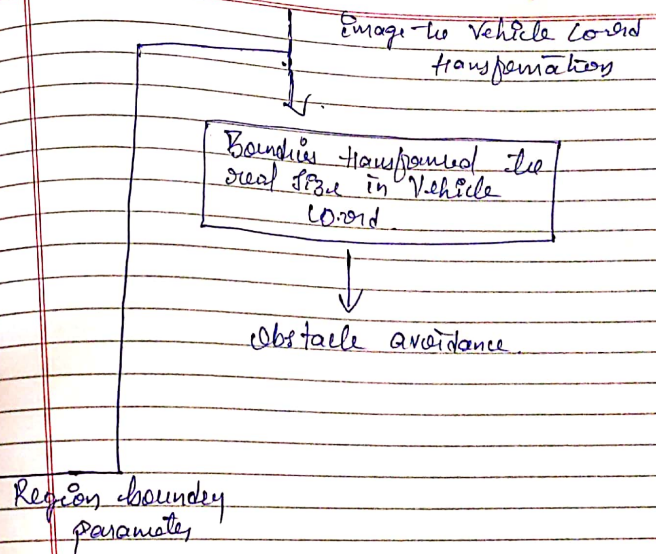 Image to Vehicle Coord
transformation
Boundries transformed to
real size in Vehicle
Coord.
Obstacle avoidance.
Region boundry
parameter